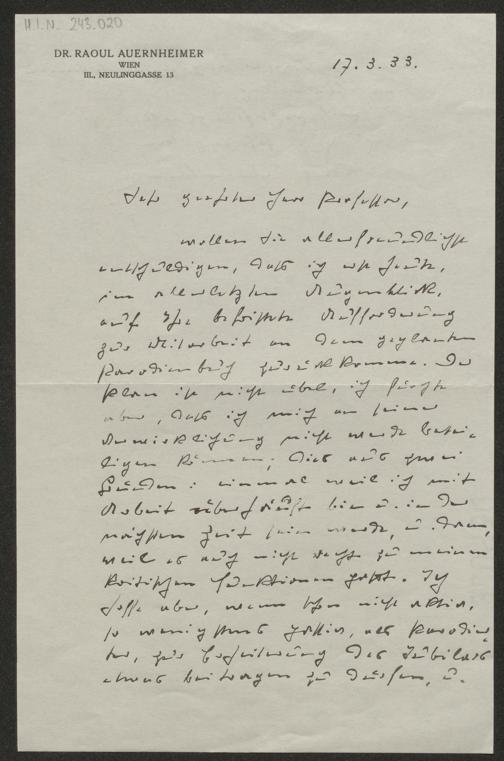 H.I.N. 243.020
DR. RAOUL AUERNHEIMER
WIEN
III., NEULINGGASSE 13
17. 3. 33.
Sehr geehrter Herr Professor,
wollen Sie allerfreundlichst
entschuldigen, daß ich erst heute,
im allerletzten Augenblick,
auf Ihre befristete Aufforderung
zur Mitarbeit an dem geplanten
Parodienbuch zurückkomme. Der
Plan ist nicht übel, ich fürchte
aber, daß ich mich an seiner
Verwirklichung nicht werde betei-
ligen können; dies aus zwei
Gründen: einmal weil ich mit
Arbeit überhäuft bin u. in der
nächsten Zeit sein werde, u. dann,
weil es auch nicht recht zu meinen
kritischen Funktionen paßt. Ich
hoffe aber, wenn schon nicht aktiv,
so wenigstens passiv, als Parodier-
ter, zur Erheiterung des Jubilars
etwas beitragen zu dürfen, u.